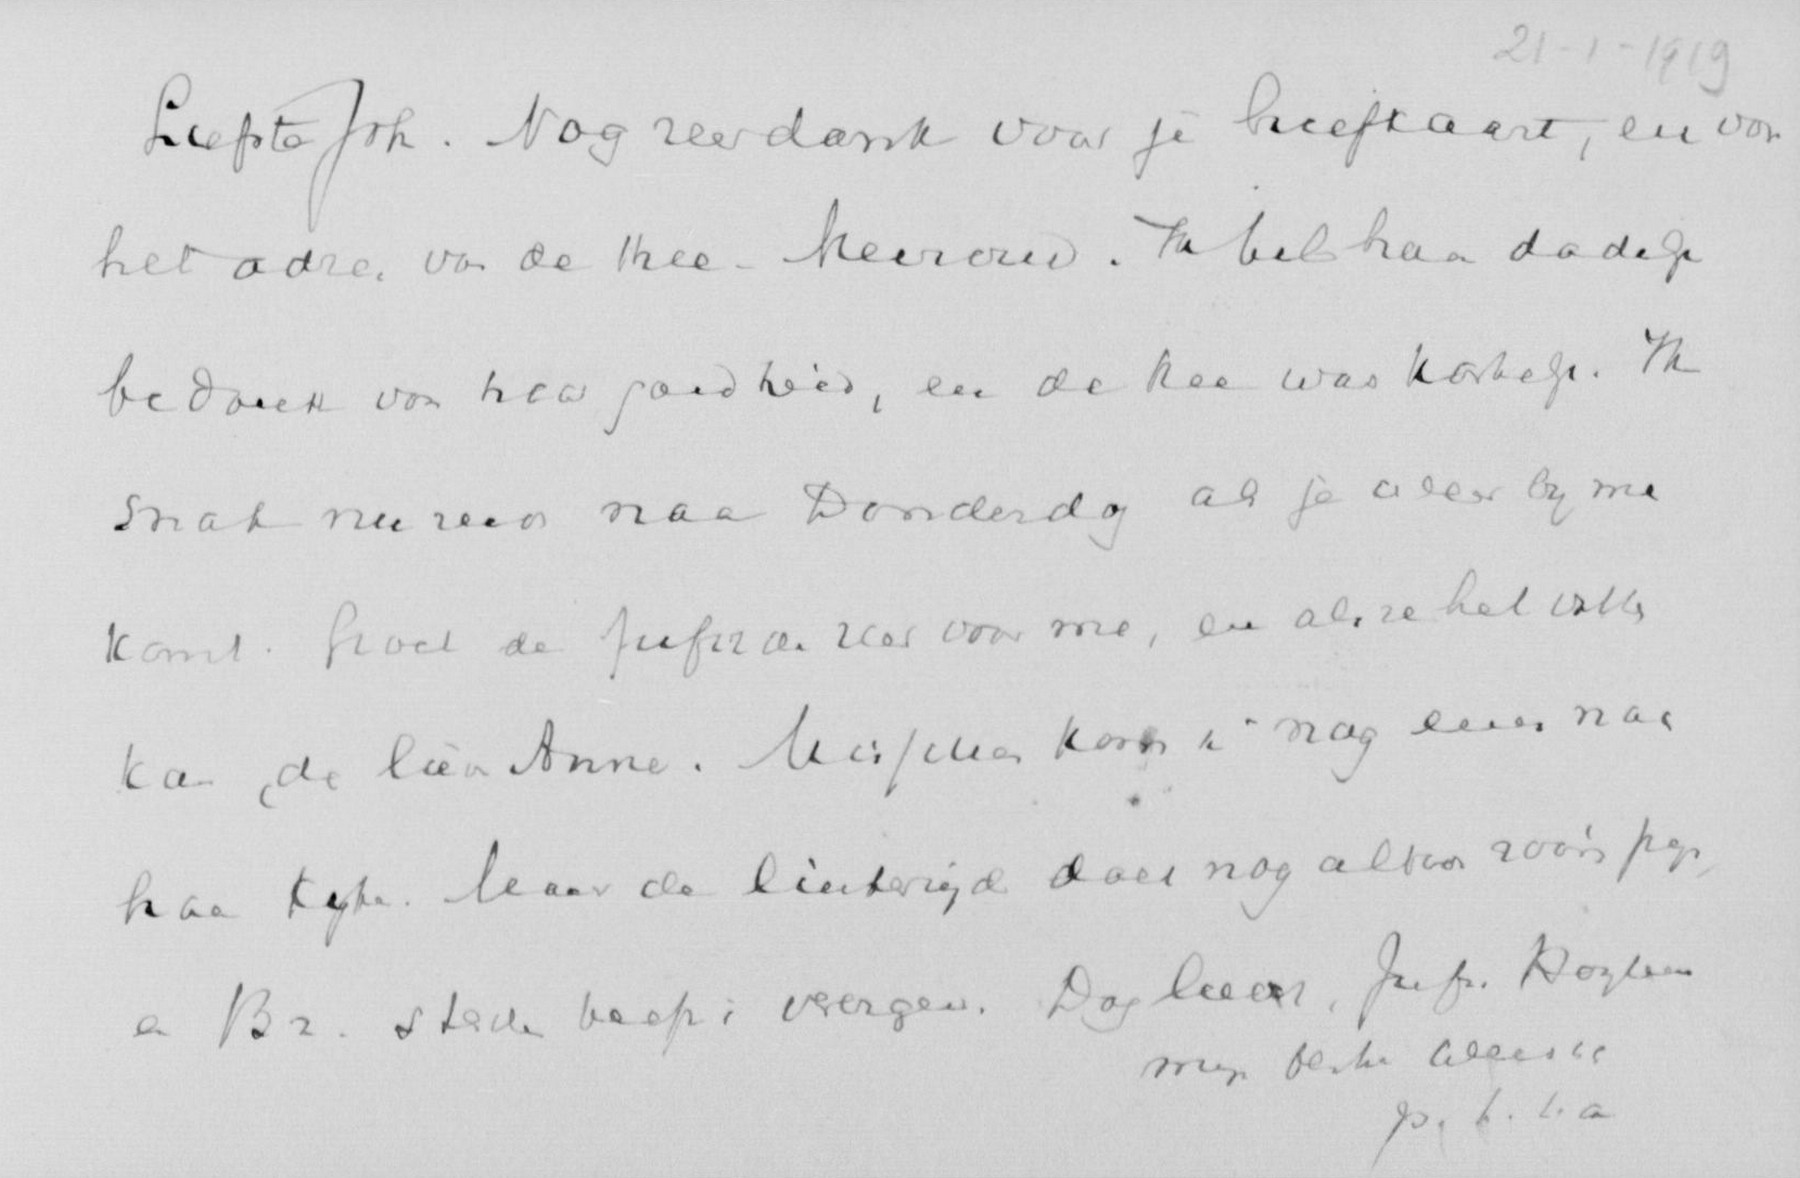 21-1-1919
Liefste Joh. Nog zeer dank voor je briefkaart, en voor
het adres van de thee-Mevrouw. Ik bel haar dadelijk
bedank voor haar goedheid, en de thee was kostelijk. Ik
snak nu zeer naar Donderdag als je weer bij me
komt. Groet de Jufrz. zeer voor me, en als ze het
kan, de lieve Anne. Misschien kom ik nog even naar
haar kijken. Maar de linkerzijde doet nog altoos zoo'n pijn,
en Br. steeds weergew. Dag lieverd, Jufr.
mijn beste